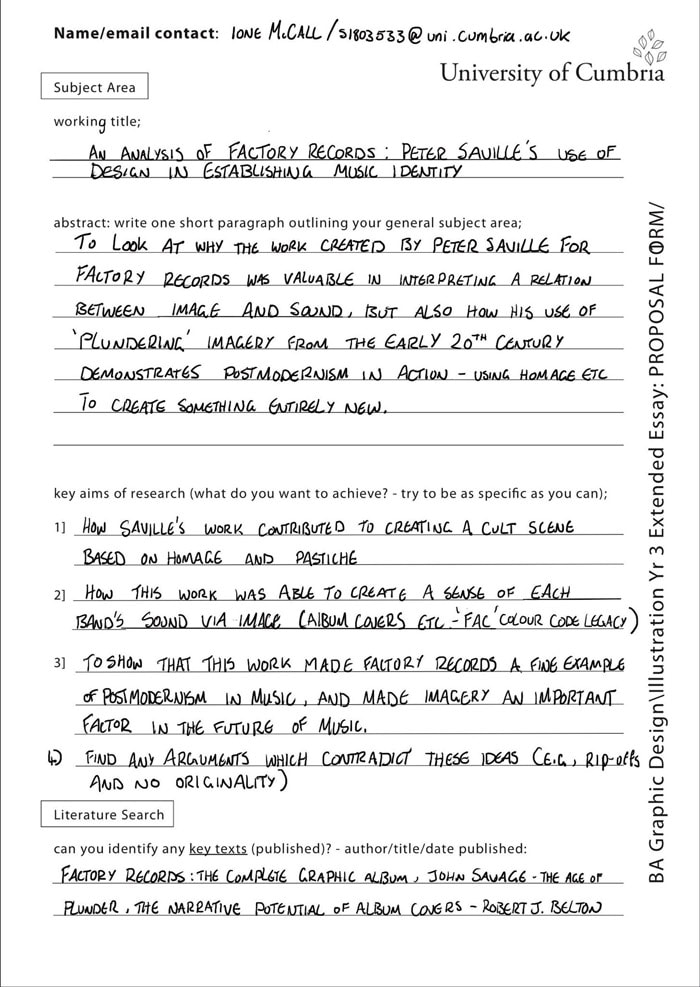 Name/email contact: IONE McCALL / s1803533@uni.cumbria.ac.uk
University of Cumbria
Subject Area
working title;
AN ANALYSIS OF FACTORY RECORDS : PETER SAVILLE'S USE OF
DESIGN IN ESTABLISHING MUSIC IDENTITY
abstract: write one short paragraph outlining your general subject area;
TO LOOK AT WHY THE WORK CREATED BY PETER SAVILLE FOR
FACTORY RECORDS WAS VALUABLE IN INTERPRETING A RELATION
BETWEEN IMAGE AND SOUND, BUT ALSO HOW HIS USE OF
'PLUNDERING' IMAGERY FROM THE EARLY 20TH CENTURY
DEMONSTRATES POSTMODERNISM IN ACTION - USING HOMAGE ETC
TO CREATE SOMETHING ENTIRELY NEW.
key aims of research (what do you want to achieve? - try to be as specific as you can);
1] HOW SAVILLE'S WORK CONTRIBUTED TO CREATING A CULT SCENE
BASED ON HOMAGE AND PASTICHE
2] HOW THIS WORK WAS ABLE TO CREATE A SENSE OF EACH
BAND'S SOUND VIA IMAGE (ALBUM COVERS ETC - 'FAC' COLOUR CODE LEGACY)
3] TO SHOW THAT THIS WORK MADE FACTORY RECORDS A FINE EXAMPLE
OF POSTMODERNISM IN MUSIC, AND MADE IMAGERY AN IMPORTANT
FACTOR IN THE FUTURE OF MUSIC.
4) FIND ANY ARGUMENTS WHICH CONTRADICT THESE IDEAS (E.G, RIP-OFFS
AND NO ORIGINALITY)
Literature Search
can you identify any key texts (published)? - author/title/date published:
FACTORY RECORDS : THE COMPLETE GRAPHIC ALBUM, JOHN SAVAGE - THE AGE OF
PLUNDER, THE NARRATIVE POTENTIAL OF ALBUM COVERS - ROBERT J. BELTON
BA Graphic Design\Illustration Yr 3 Extended Essay: PROPOSAL FORM/